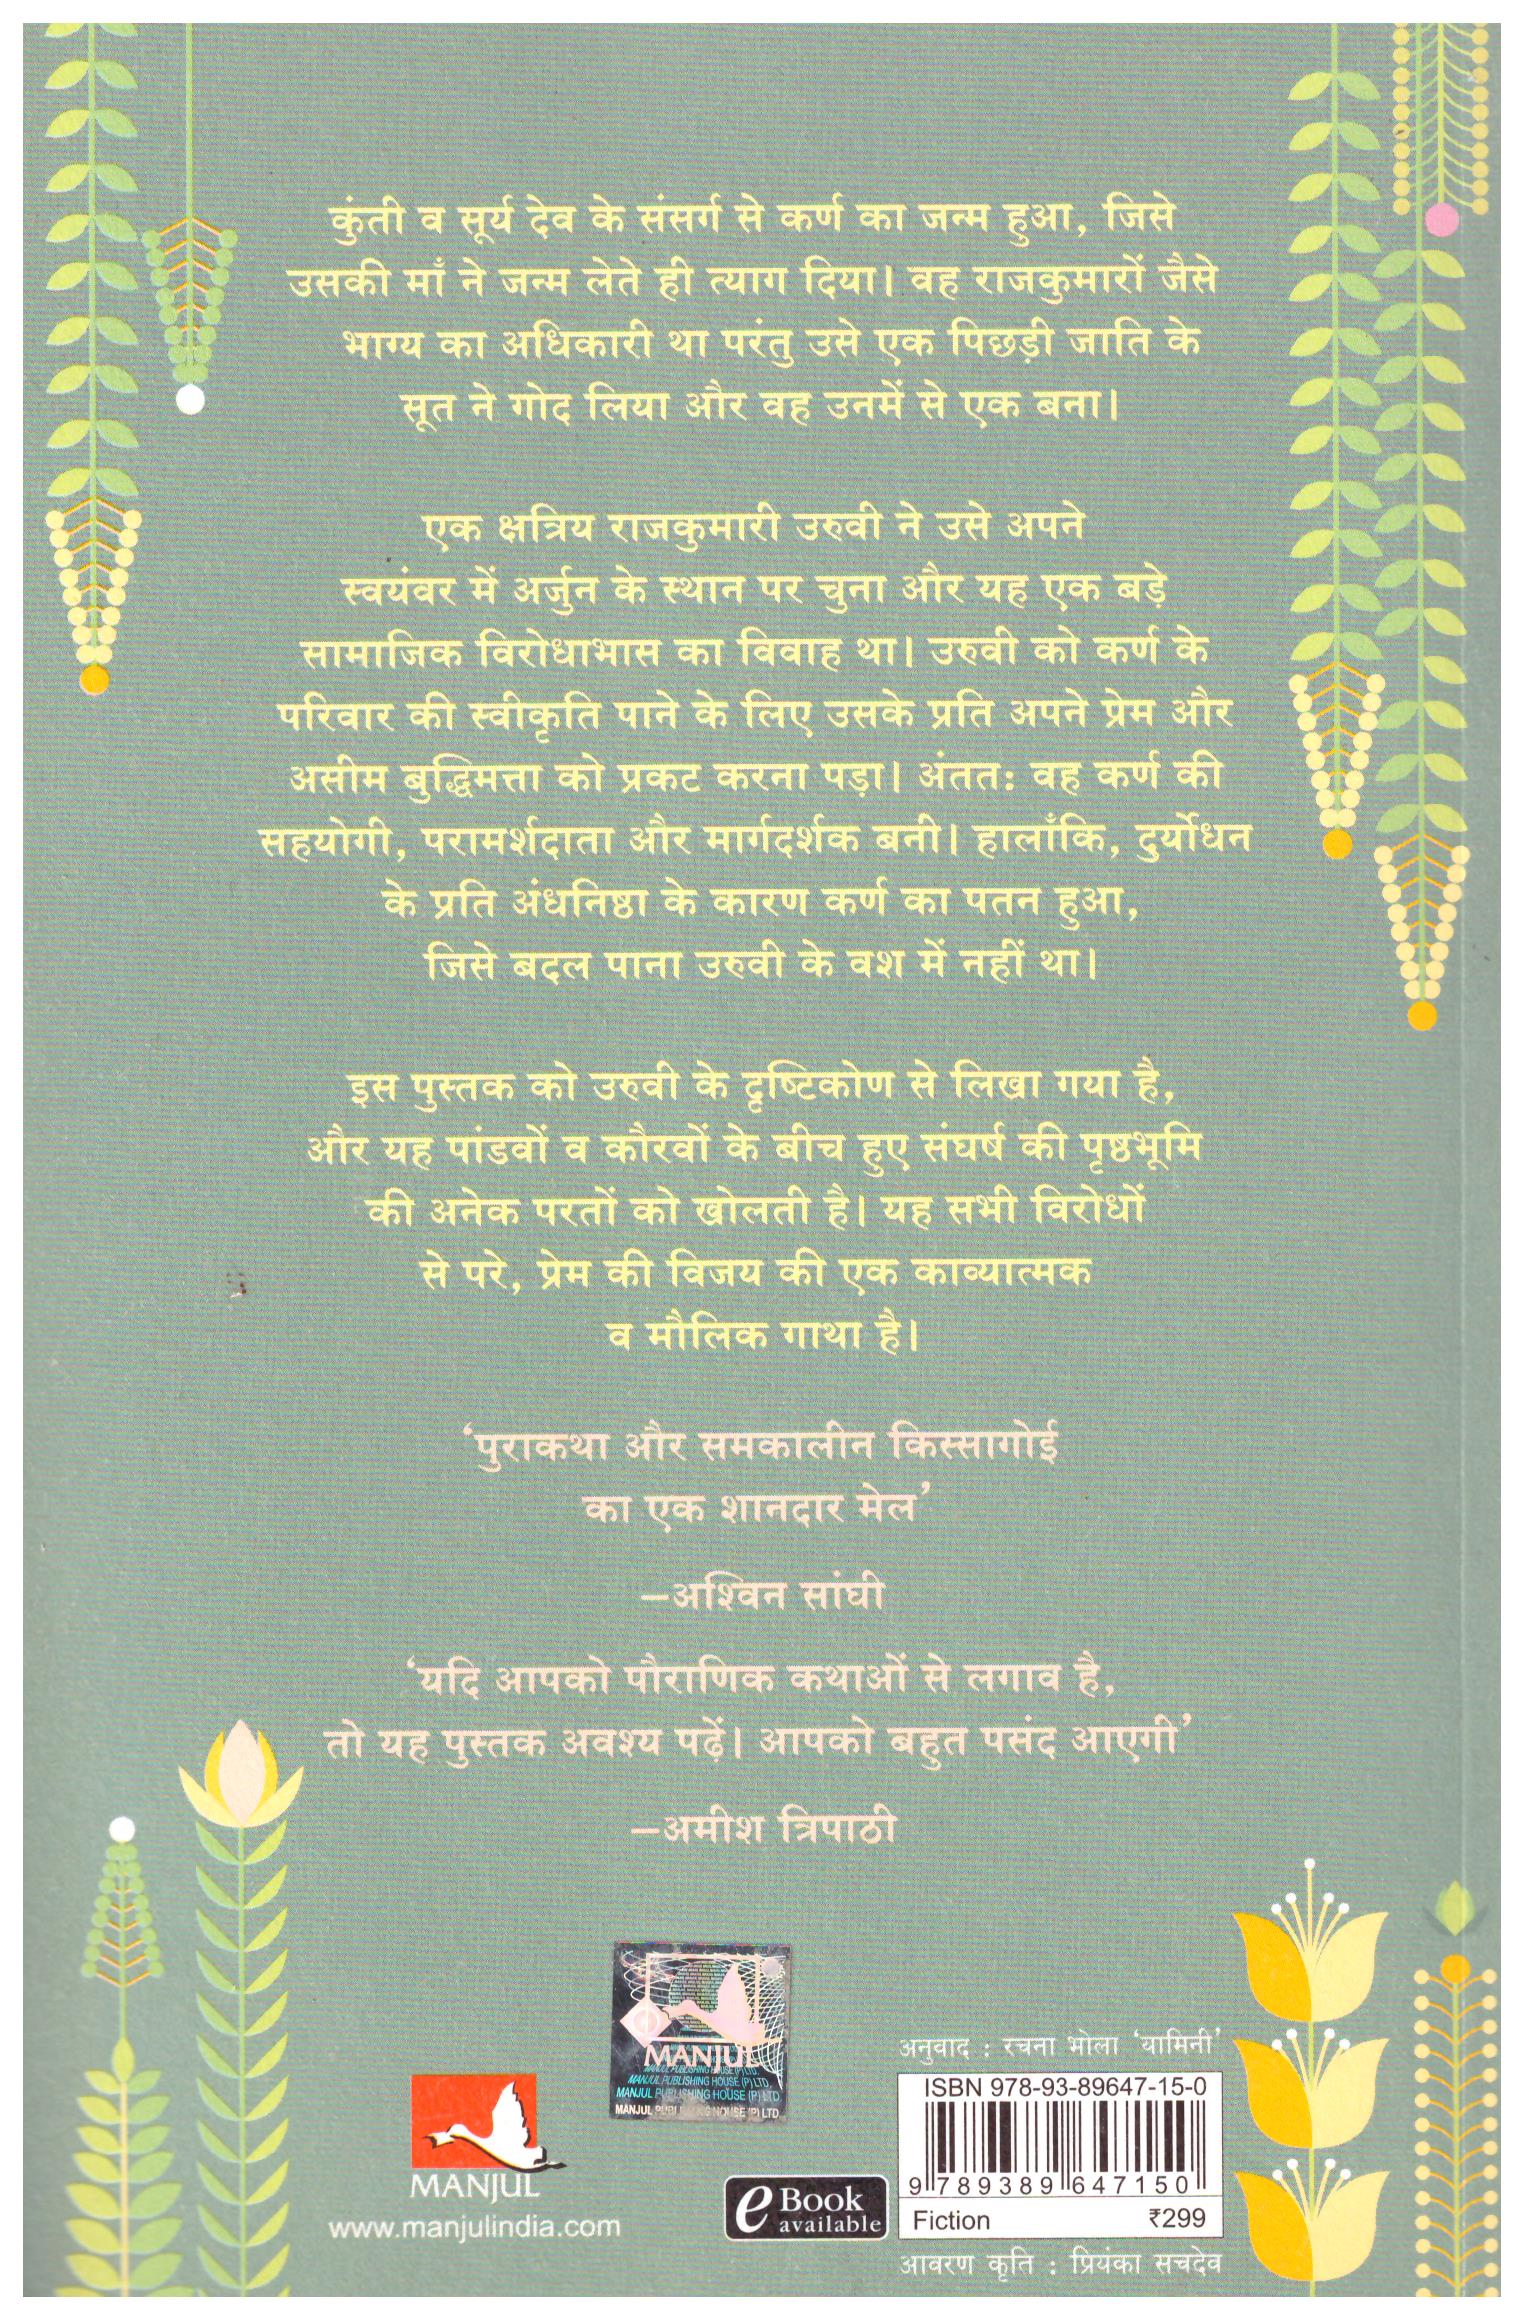 कुंती व सूर्य देव के संसर्ग से कर्ण का जन्म हुआ, जिसे
उसकी माँ ने जन्म लेते ही त्याग दिया। वह राजकुमारों जैसे
भाग्य का अधिकारी था परंतु उसे एक पिछड़ी जाति के
सूत ने गोद लिया और वह उनमें से एक बना।
एक क्षत्रिय राजकुमारी उरुवी ने उसे अपने
स्वयंवर में अर्जुन के स्थान पर चुना और यह एक बड़े
सामाजिक विरोधाभास का विवाह था। उरुवी को कर्ण के
परिवार की स्वीकृति पाने के लिए उसके प्रति अपने प्रेम और
असीम बुद्धिमत्ता को प्रकट करना पड़ा। अंतत: वह कर्ण की
सहयोगी, परामर्शदाता और मार्गदर्शक बनी। हालाँकि, दुर्योधन
के प्रति अंधनिष्ठा के कारण कर्ण का पतन हुआ,
जिसे बदल पाना उरुवी के वश में नहीं था।
इस पुस्तक को उरुवी के दृष्टिकोण से लिखा गया है,
और यह पांडवों व कौरवों के बीच हुए संघर्ष की पृष्ठभूमि
की अनेक परतों को खोलती है। यह सभी विरोधों
से परे, प्रेम की विजय की एक काव्यात्मक
व मौलिक गाथा है।
‘पुराकथा और समकालीन किस्सागोई
का एक शानदार मेल’
–अश्विन सांघी
‘यदि आपको पौराणिक कथाओं से लगाव है,
तो यह पुस्तक अवश्य पढ़ें। आपको बहुत पसंद आएगी’
–अमीश त्रिपाठी
MANJUL
MANJUL PUBLISHING HOUSE (P) LTD.
MANJUL PUBLISHING HOUSE (P) LTD.
MANJUL PUBLISHING HOUSE (P) LTD
MANJUL PUBLISHING HOUSE (P) LTD
MANJUL
www.manjulindia.com
eBook
available
अनुवाद : रचना भोला ‘यामिनी’
ISBN 978-93-89647-15-0
9 789389 647150
Fiction ₹299
आवरण कृति : प्रियंका सचदेव